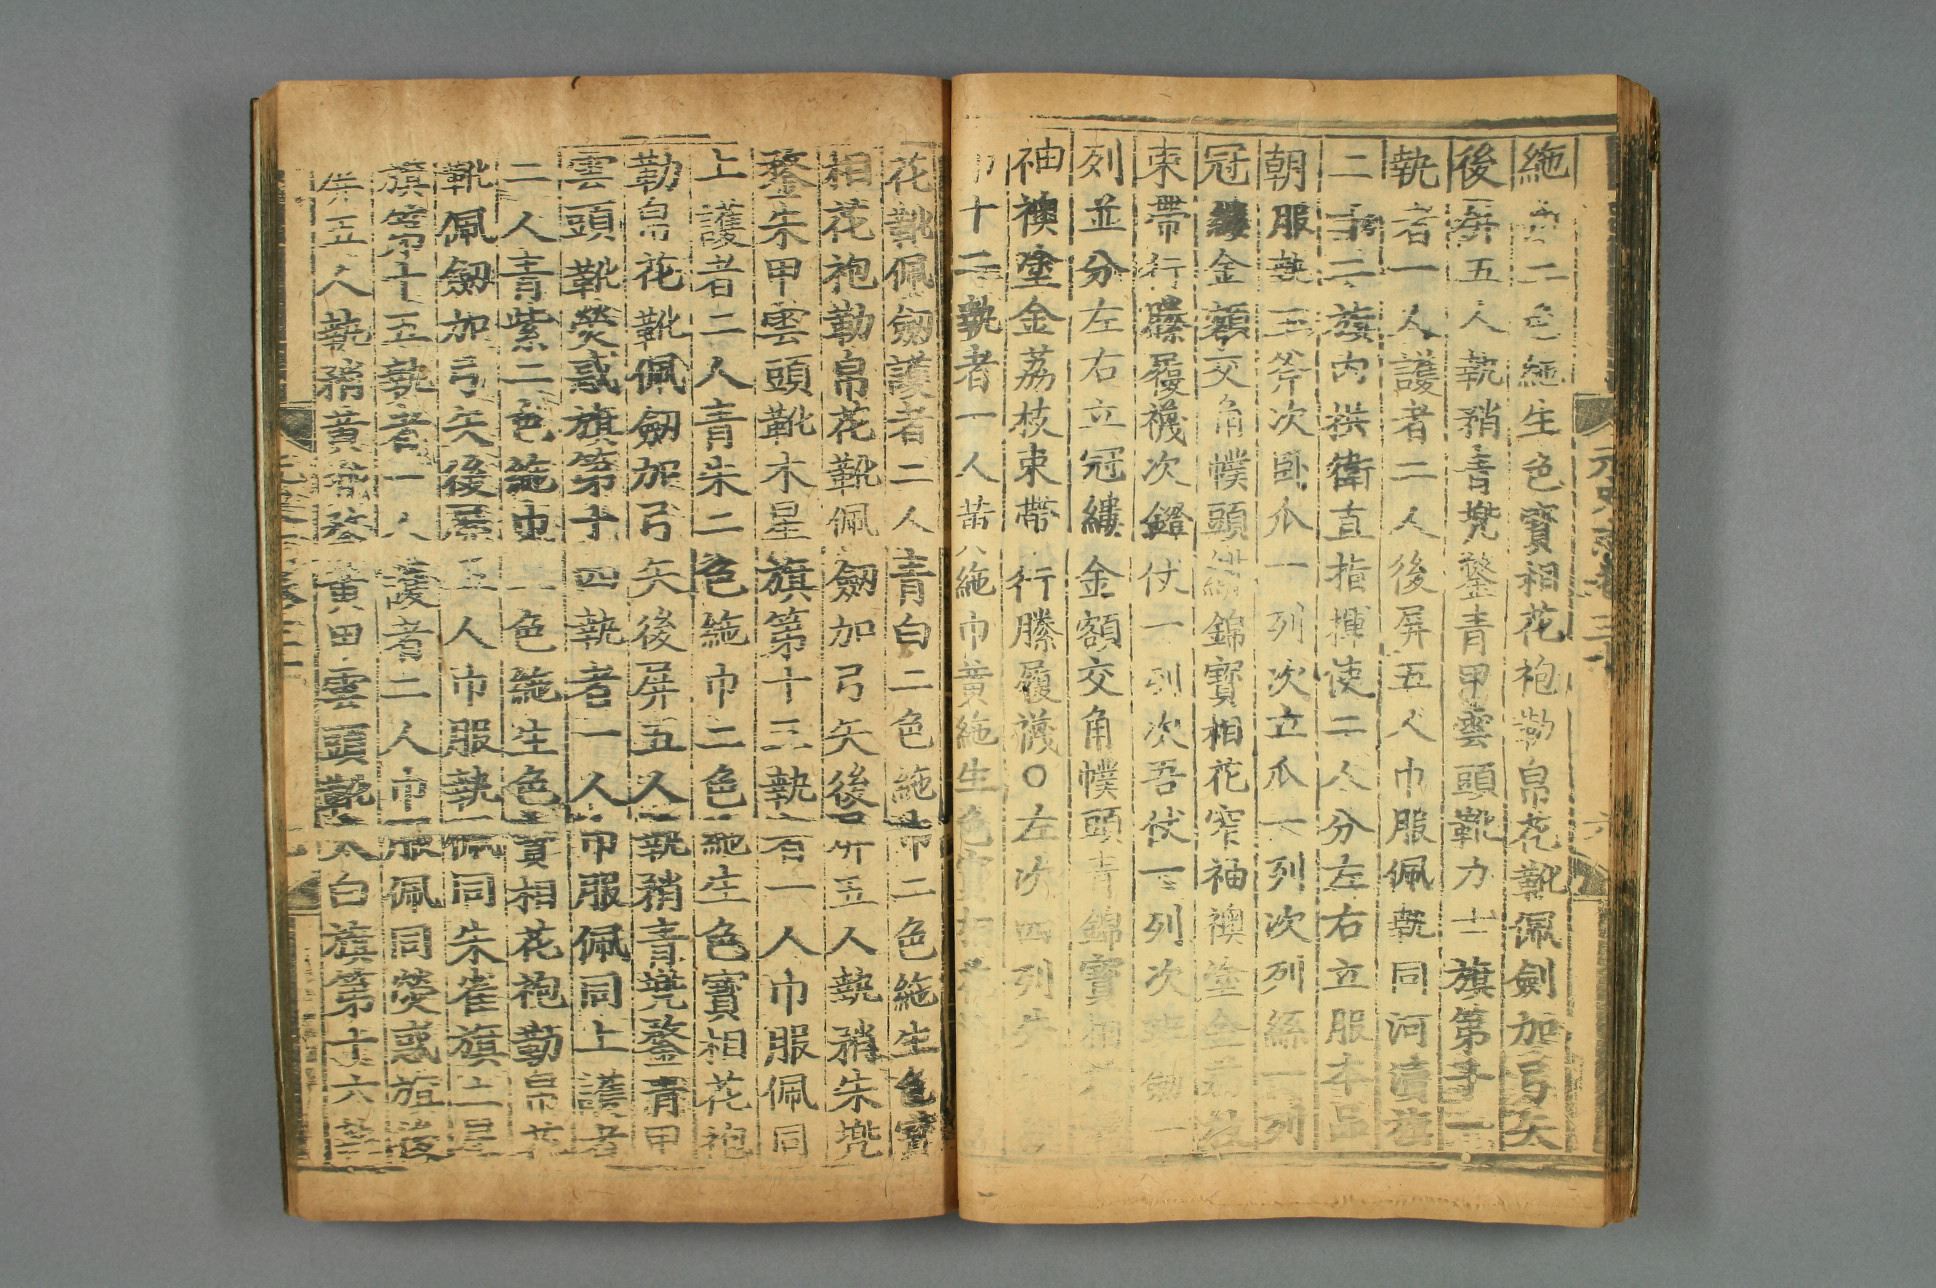 絁巾二色絁生色寶相花袍勒帛花靴佩劍加弓矢
後屏五人執矟青兠鍪青甲雲頭靴力士旗第二十一
執者一人護者二人後屏五人巾服佩執同河瀆旗
二十二旗內拱衛直指揮使二人分左右立服本品
朝服執玉斧次卧爪一列次立爪一列次列絲一列
冠縷金額交角幞頭緋錦寶相花窄袖襖塗金荔枝
束帶行縢履襪次鐙仗一列次吾仗一列次班劒一
列並分左右立冠縷金額交角幞頭青錦寶相花窄
袖襖塗金荔枝束帶行縢履襪〇左次四列
十二執者一人黃絁巾黃絁生色寶相花
元史志卷三十
六
花靴佩劒護者二人青白二色絁巾二色絁生色寶
相花袍勒帛花靴佩劒加弓矢後屏五人執矟朱兠
鍪朱甲雲頭靴木星旗第十三執者一人巾服佩同
上護者二人青朱二色絁巾二色絁生色寶相花袍
勒帛花靴佩劒加弓矢後屏五人執矟青兠鍪青甲
雲頭靴熒惑旗第十四執者一人巾服佩同上護者
二人青紫二色絁巾二色絁生色寶相花袍勒帛花
靴佩劒加弓矢後屏五人巾服執佩同朱雀旗土星
旗第十五執者一人護者二人巾服佩同熒惑旗後
屏五人執矟黃兠鍪黃甲雲頭靴太白旗第十六執